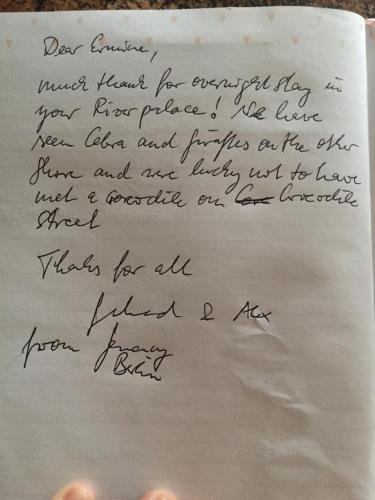 Dear Ermine,
much thank for overnight stay in
your River palace! We have
seen Cebra and giraffes on the other
Shore and were lucky not to have
met a crocodile on Crocodile
Street
Thaks for all
& Alex
from Germany
Berlin